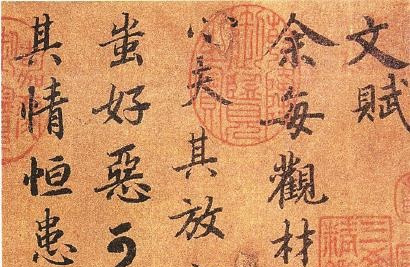 文賦
余每觀材
心夫其放
蚩好惡可
其情恒患